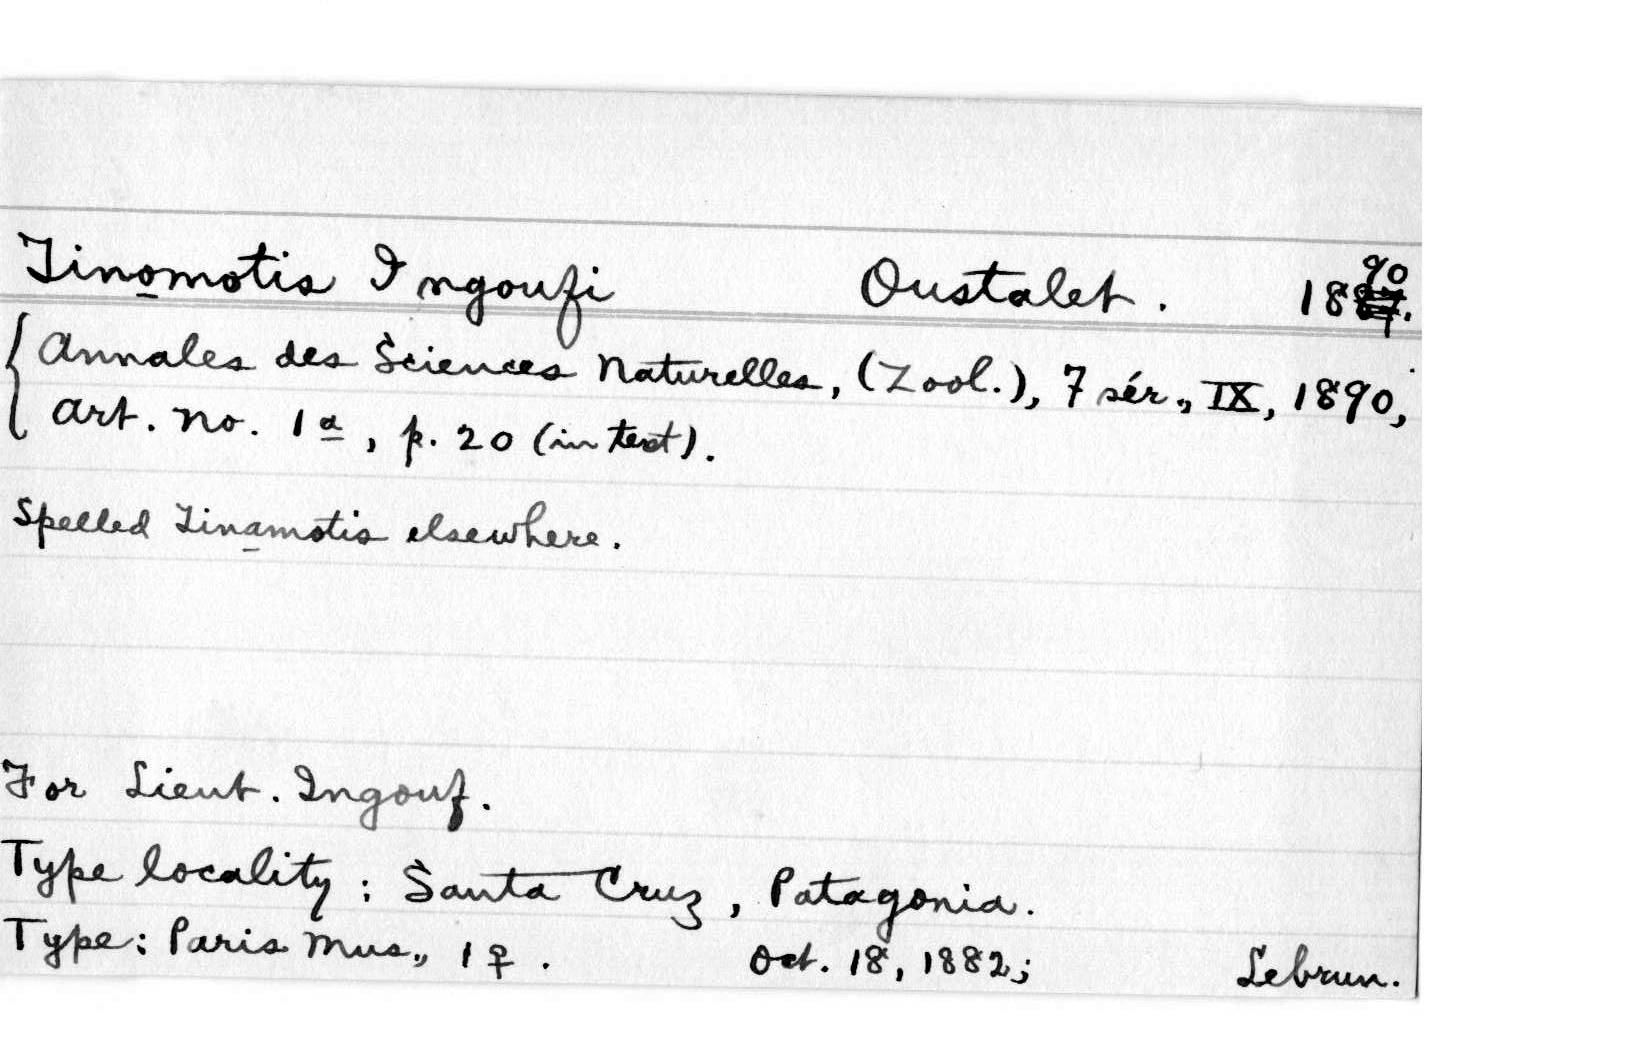 Tinomotis Ingoufi Oustalet. 1890.
Annales des Sciences Naturelles, (Zool.), 7 sér., IX, 1890,
Art. No. 1a, p. 20 (in text).
Spelled Tinamotis elsewhere.
For Lieut. Ingouf.
Type locality: Santa Cruz, Patagonia.
Type: Paris Mus., 1 ♀. Oct. 18, 1882; Lebrun.